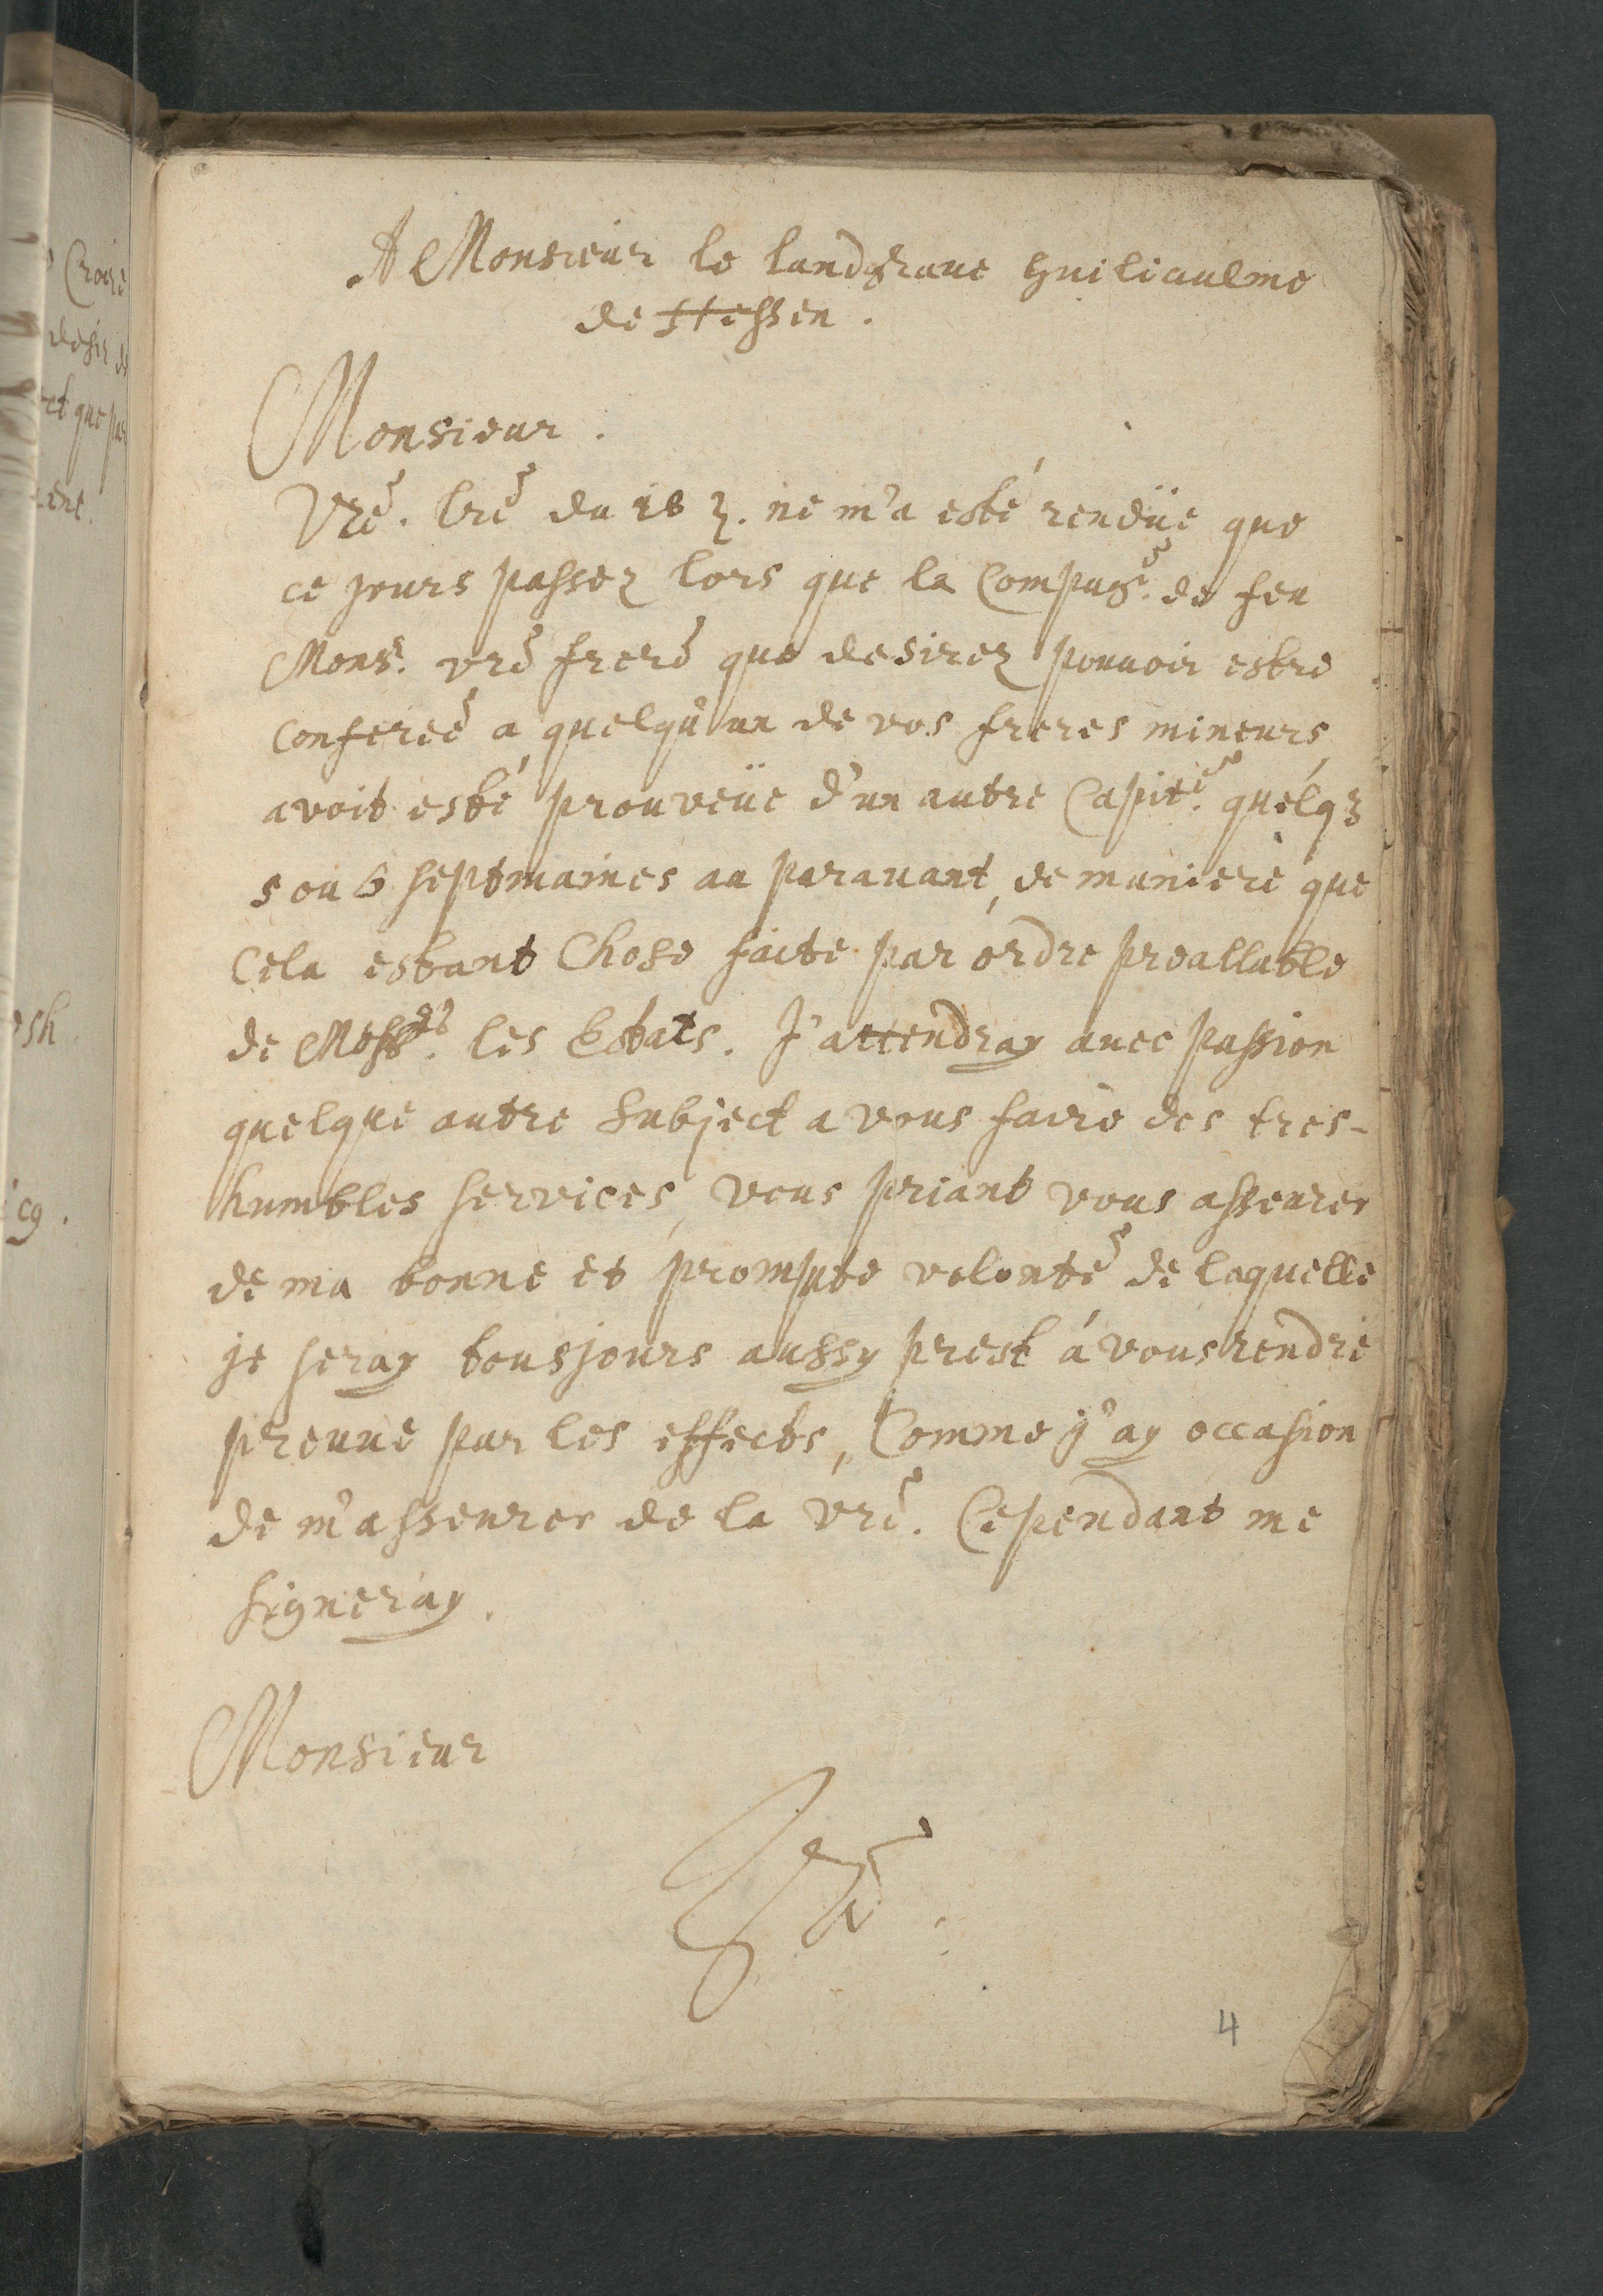 A Monsieur le landgrave Guiliaulme
de Hessen.
Monsieur.
Vrẽ. lrẽ du 16 ne m'a esté rendüe que
ce jours passez lors que la Compagẽ. de feu
Monsr. vrẽ frere que desirez pouvoir estre
conferée a quelqu'un de vos freres mineurs,
avoit esté prouveüe d'un autre Capitẽ. quelqz
5 ou 6 septmaines au paravant, de maniere que
Cela estant Chose faite par ordre preallable
de Messrs. les Estats. J'attendray avec passion
quelque autre subject a vous faire des tres-
humbles services, vous priant vous asseurer
de ma bonne et prompte volonté de laquelle
je seray tousjours aussy prest á vous rendre
preuve par les effects, Comme j'ay occasion
de m'asseurer de la vrẽ. Cependant me
signeray.
Monsieur
4
Croire
desir de
et que par
ent.
sh
cy.